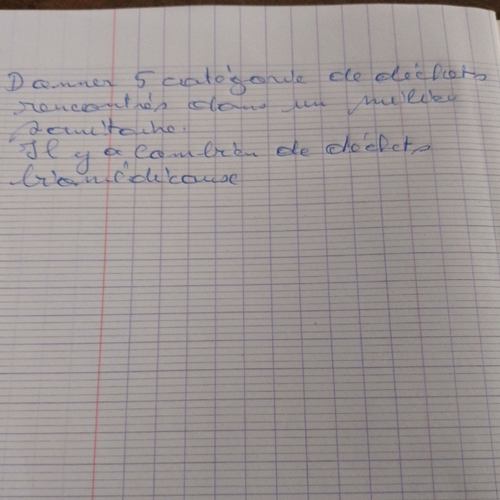 Donner 5 catégorie de déchets
rencontrés dans un milieu
sanitaire.
Il y a combien de déchets
biomédicaux